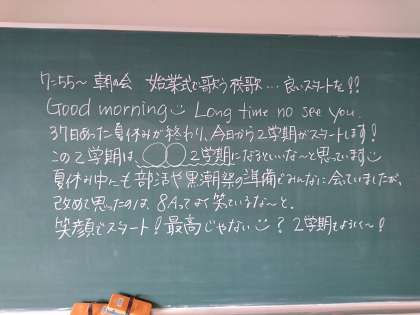 7:55～ 朝の会 始業式で歌う校歌…良いスタートを!!
Good morning Long time no see you.
37日あった夏休みが終わり、今日から2学期がスタートします!
この2学期は、○○○2学期になるといいな～と思っています
夏休み中にも部活や黒潮祭の準備でみんなに会っていましたが、
改めて思ったのは、8Aってよく笑ているな～と。
笑顔でスタート!最高じゃない?2学期もよろしく～!